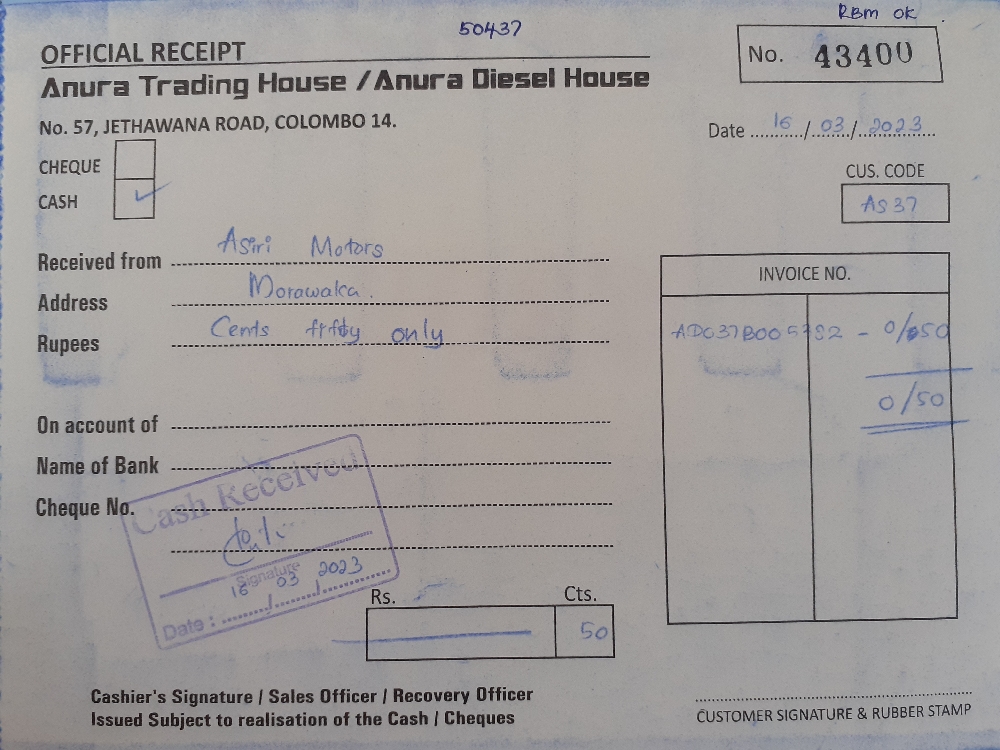 RBM OK
50437
OFFICIAL RECEIPT
No. 43400
Anura Trading House / Anura Diesel House
No. 57, JETHAWANA ROAD, COLOMBO 14.
Date 16/03/2023
CHEQUE
CASH ✓
CUS. CODE
AS37
Received from Asiri Motors
Address Morawaka.
Rupees Cents fifty only
INVOICE NO.
ADC37B005382 - 0/50
0/50
On account of
Name of Bank
Cheque No.
Cash Received
Signature
Date : 16/03/2023
Rs. Cts.
50
Cashier's Signature / Sales Officer / Recovery Officer
Issued Subject to realisation of the Cash / Cheques
CUSTOMER SIGNATURE & RUBBER STAMP